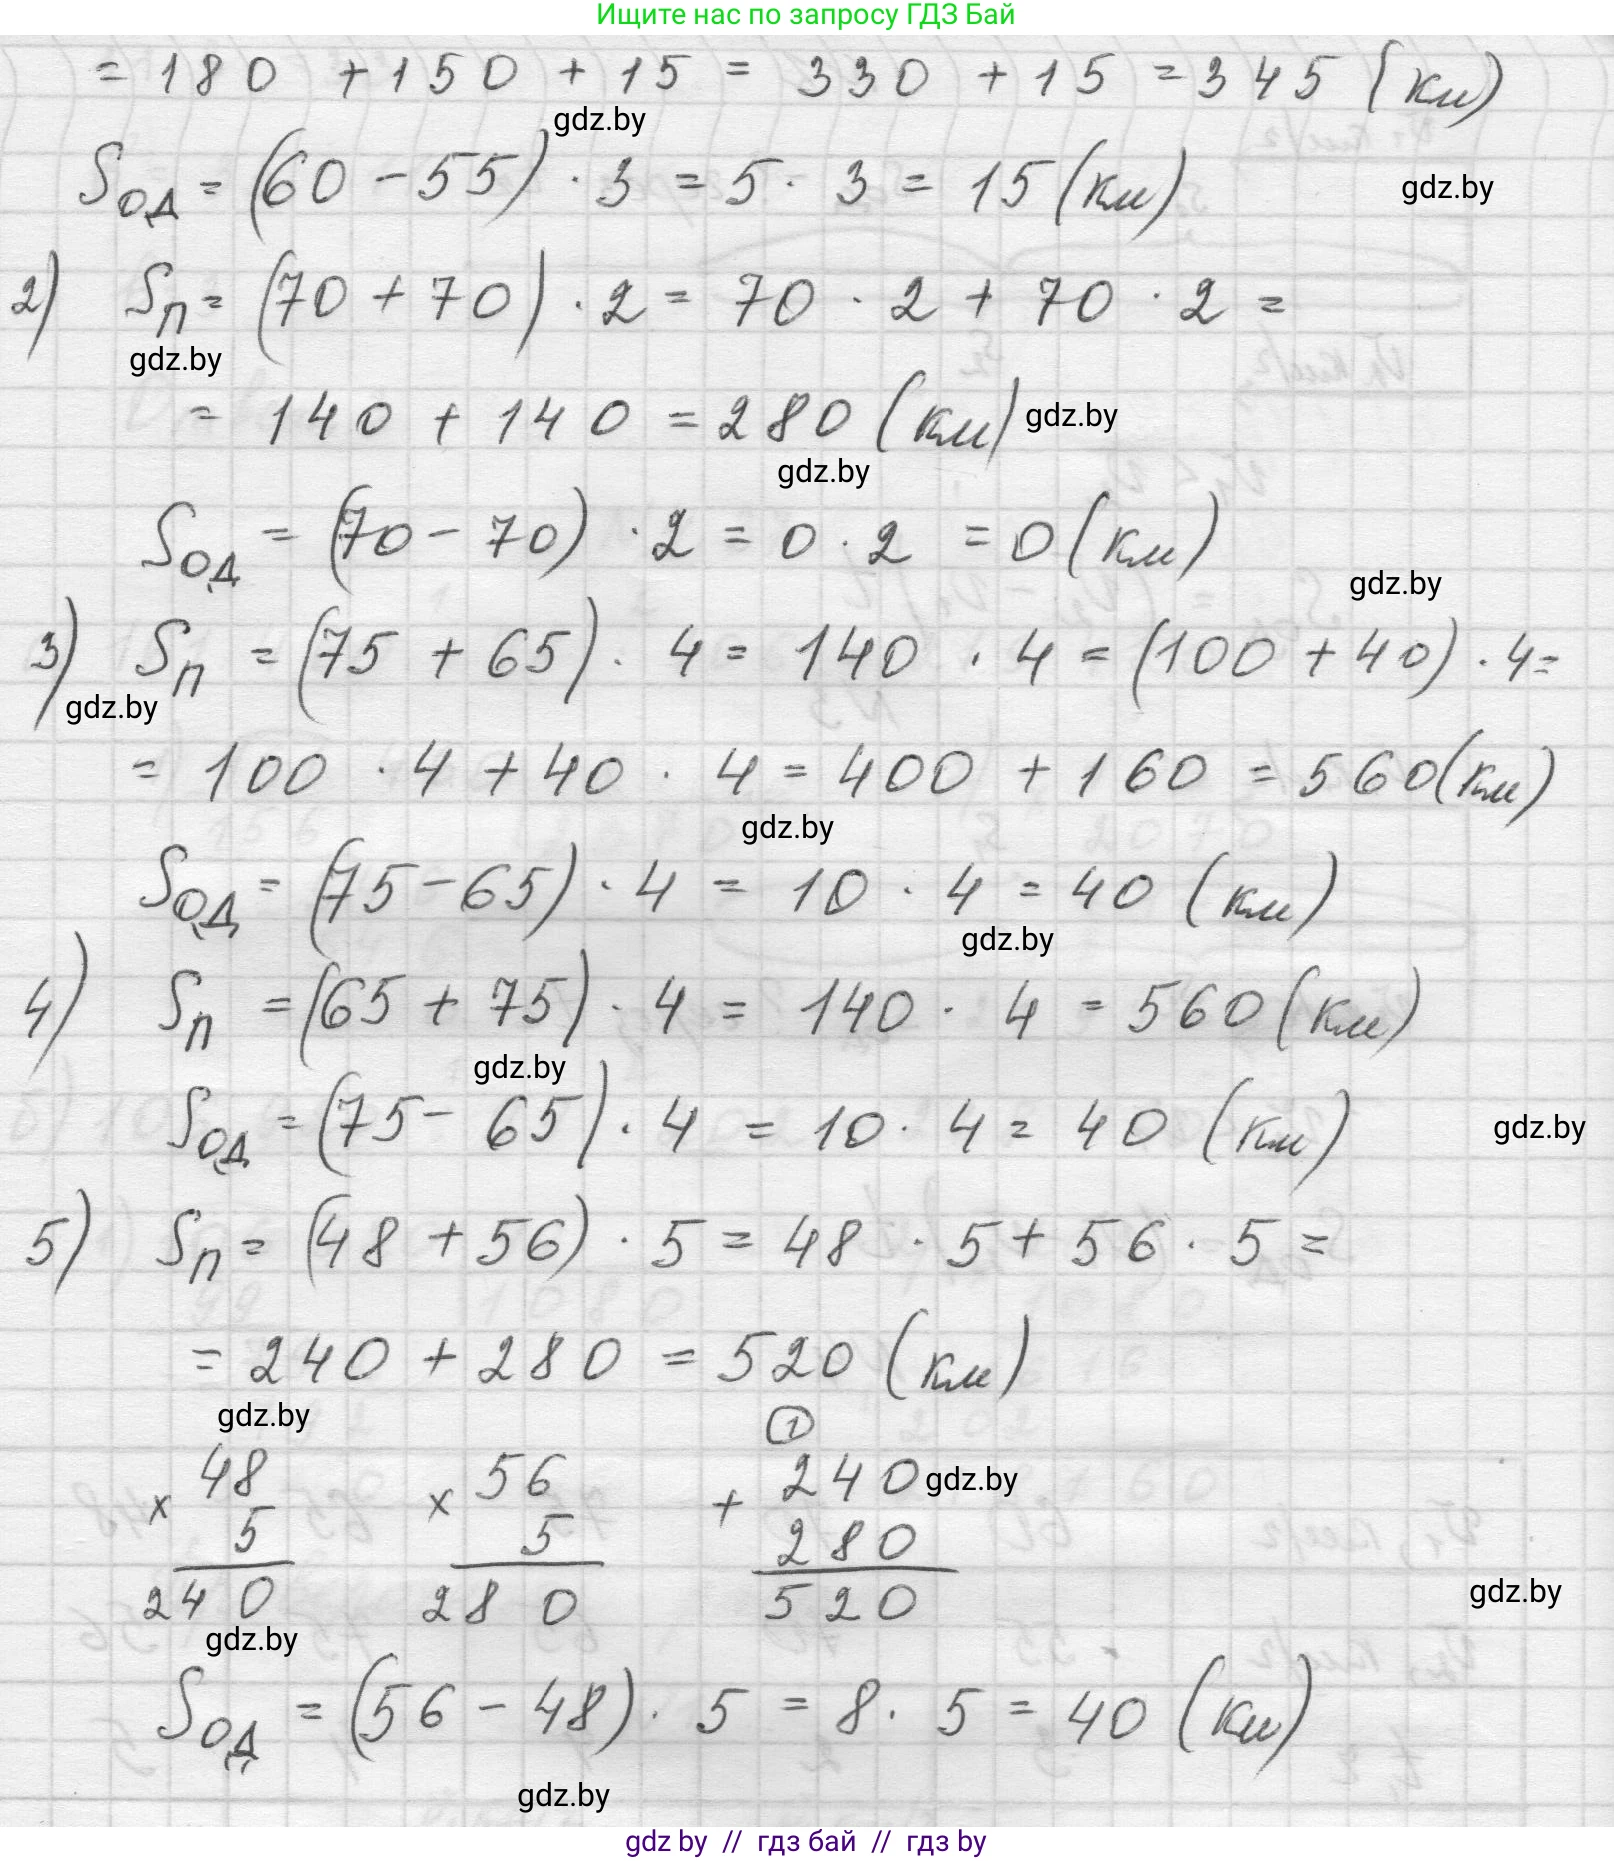 Ищите нас по запросу ГДЗ Бай
= 180 + 150 + 15 = 330 + 15 = 345 (км)
gdz.by
Sод = (60 - 55) · 3 = 5 · 3 = 15 (км)
gdz.by
2) Sп = (70 + 70) · 2 = 70 · 2 + 70 · 2 =
gdz.by
= 140 + 140 = 280 (км)
gdz.by
gdz.by
Sод = (70 - 70) · 2 = 0 · 2 = 0 (км)
gdz.by
3) Sп = (75 + 65) · 4 = 140 · 4 = (100 + 40) · 4 =
gdz.by
= 100 · 4 + 40 · 4 = 400 + 160 = 560 (км)
gdz.by
Sод = (75 - 65) · 4 = 10 · 4 = 40 (км)
gdz.by
4) Sп = (65 + 75) · 4 = 140 · 4 = 560 (км)
gdz.by
Sод = (75 - 65) · 4 = 10 · 4 = 40 (км)
gdz.by
5) Sп = (48 + 56) · 5 = 48 · 5 + 56 · 5 =
= 240 + 280 = 520 (км)
gdz.by
1
× 48 × 56 + 240
gdz.by
5 5 280
240 280 520
gdz.by
gdz.by
Sод = (56 - 48) · 5 = 8 · 5 = 40 (км)
gdz.by
gdz by // гдз бай // гдз by